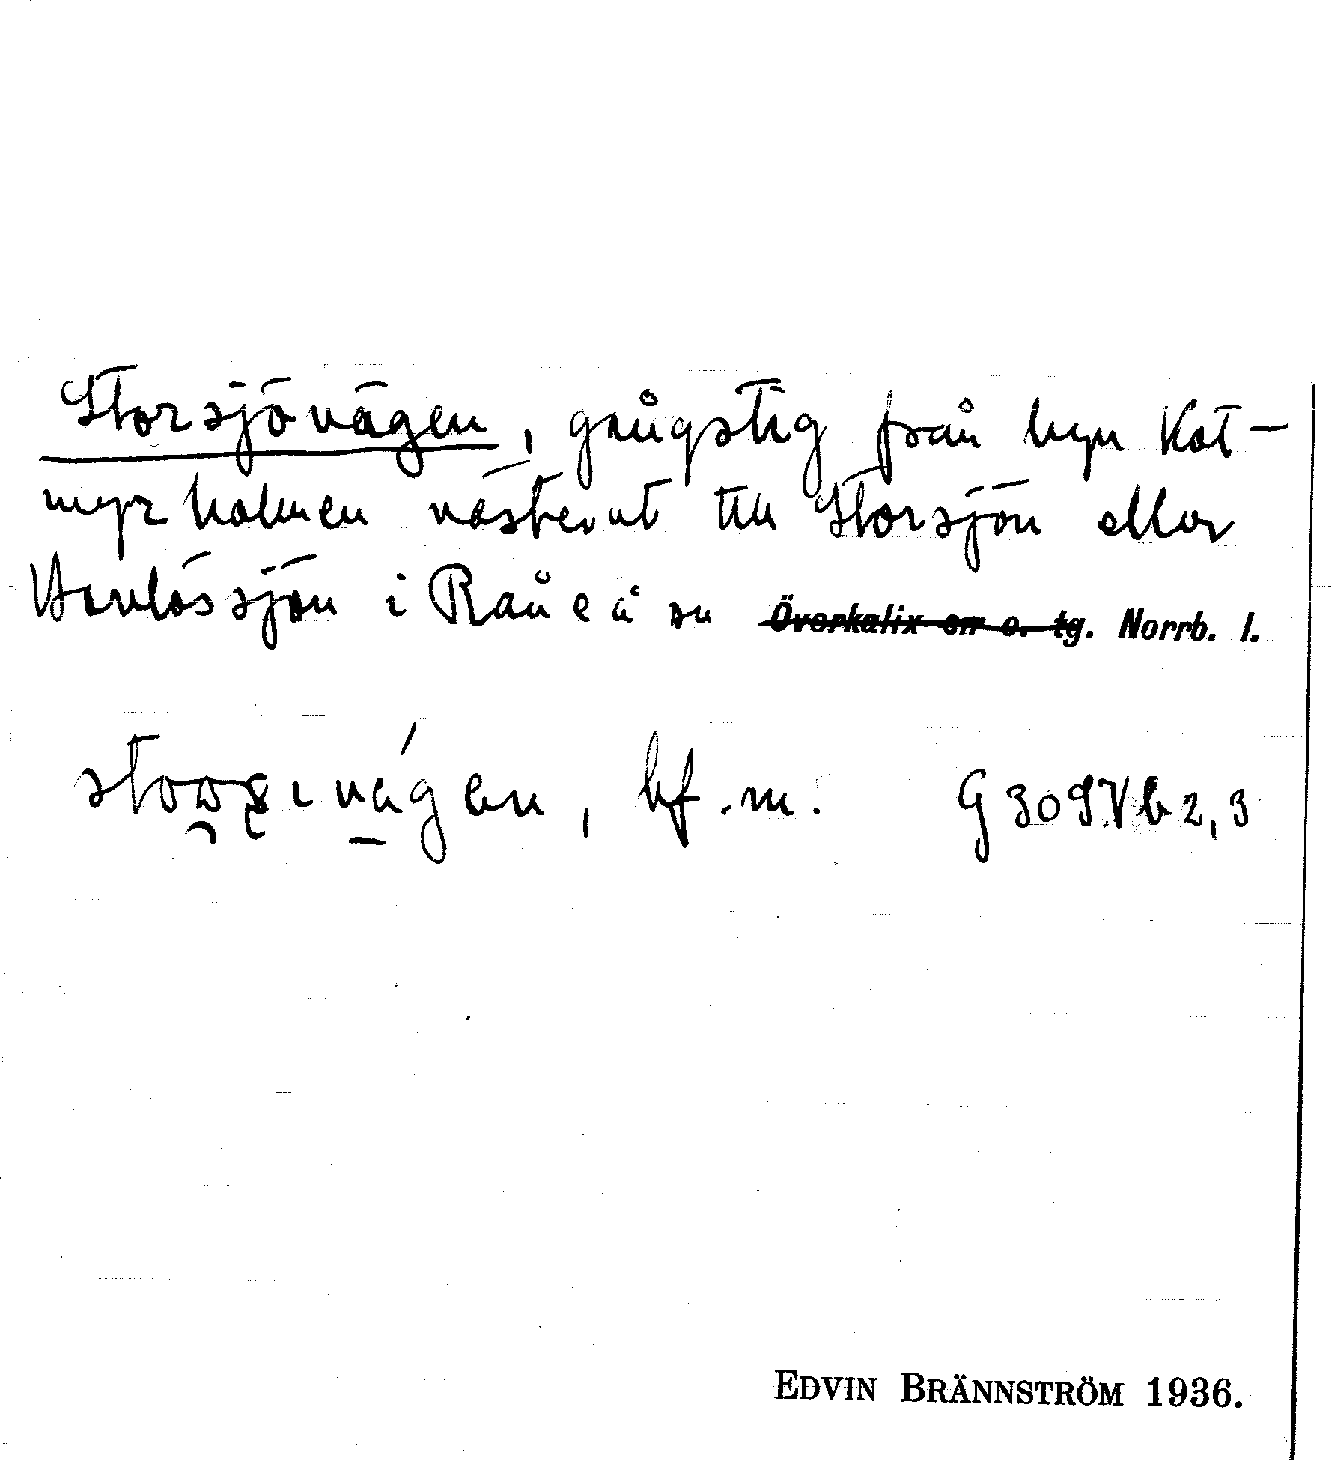 Storsjövägen, gångstig från byn Kat-
myrholmen västerut till Storsjön eller
sjön i Råneå sn Överkalix sn o. tg. Norrb. l.
bf. m. G 309 V b 2, 3
EDVIN BRÄNNSTRÖM 1936.